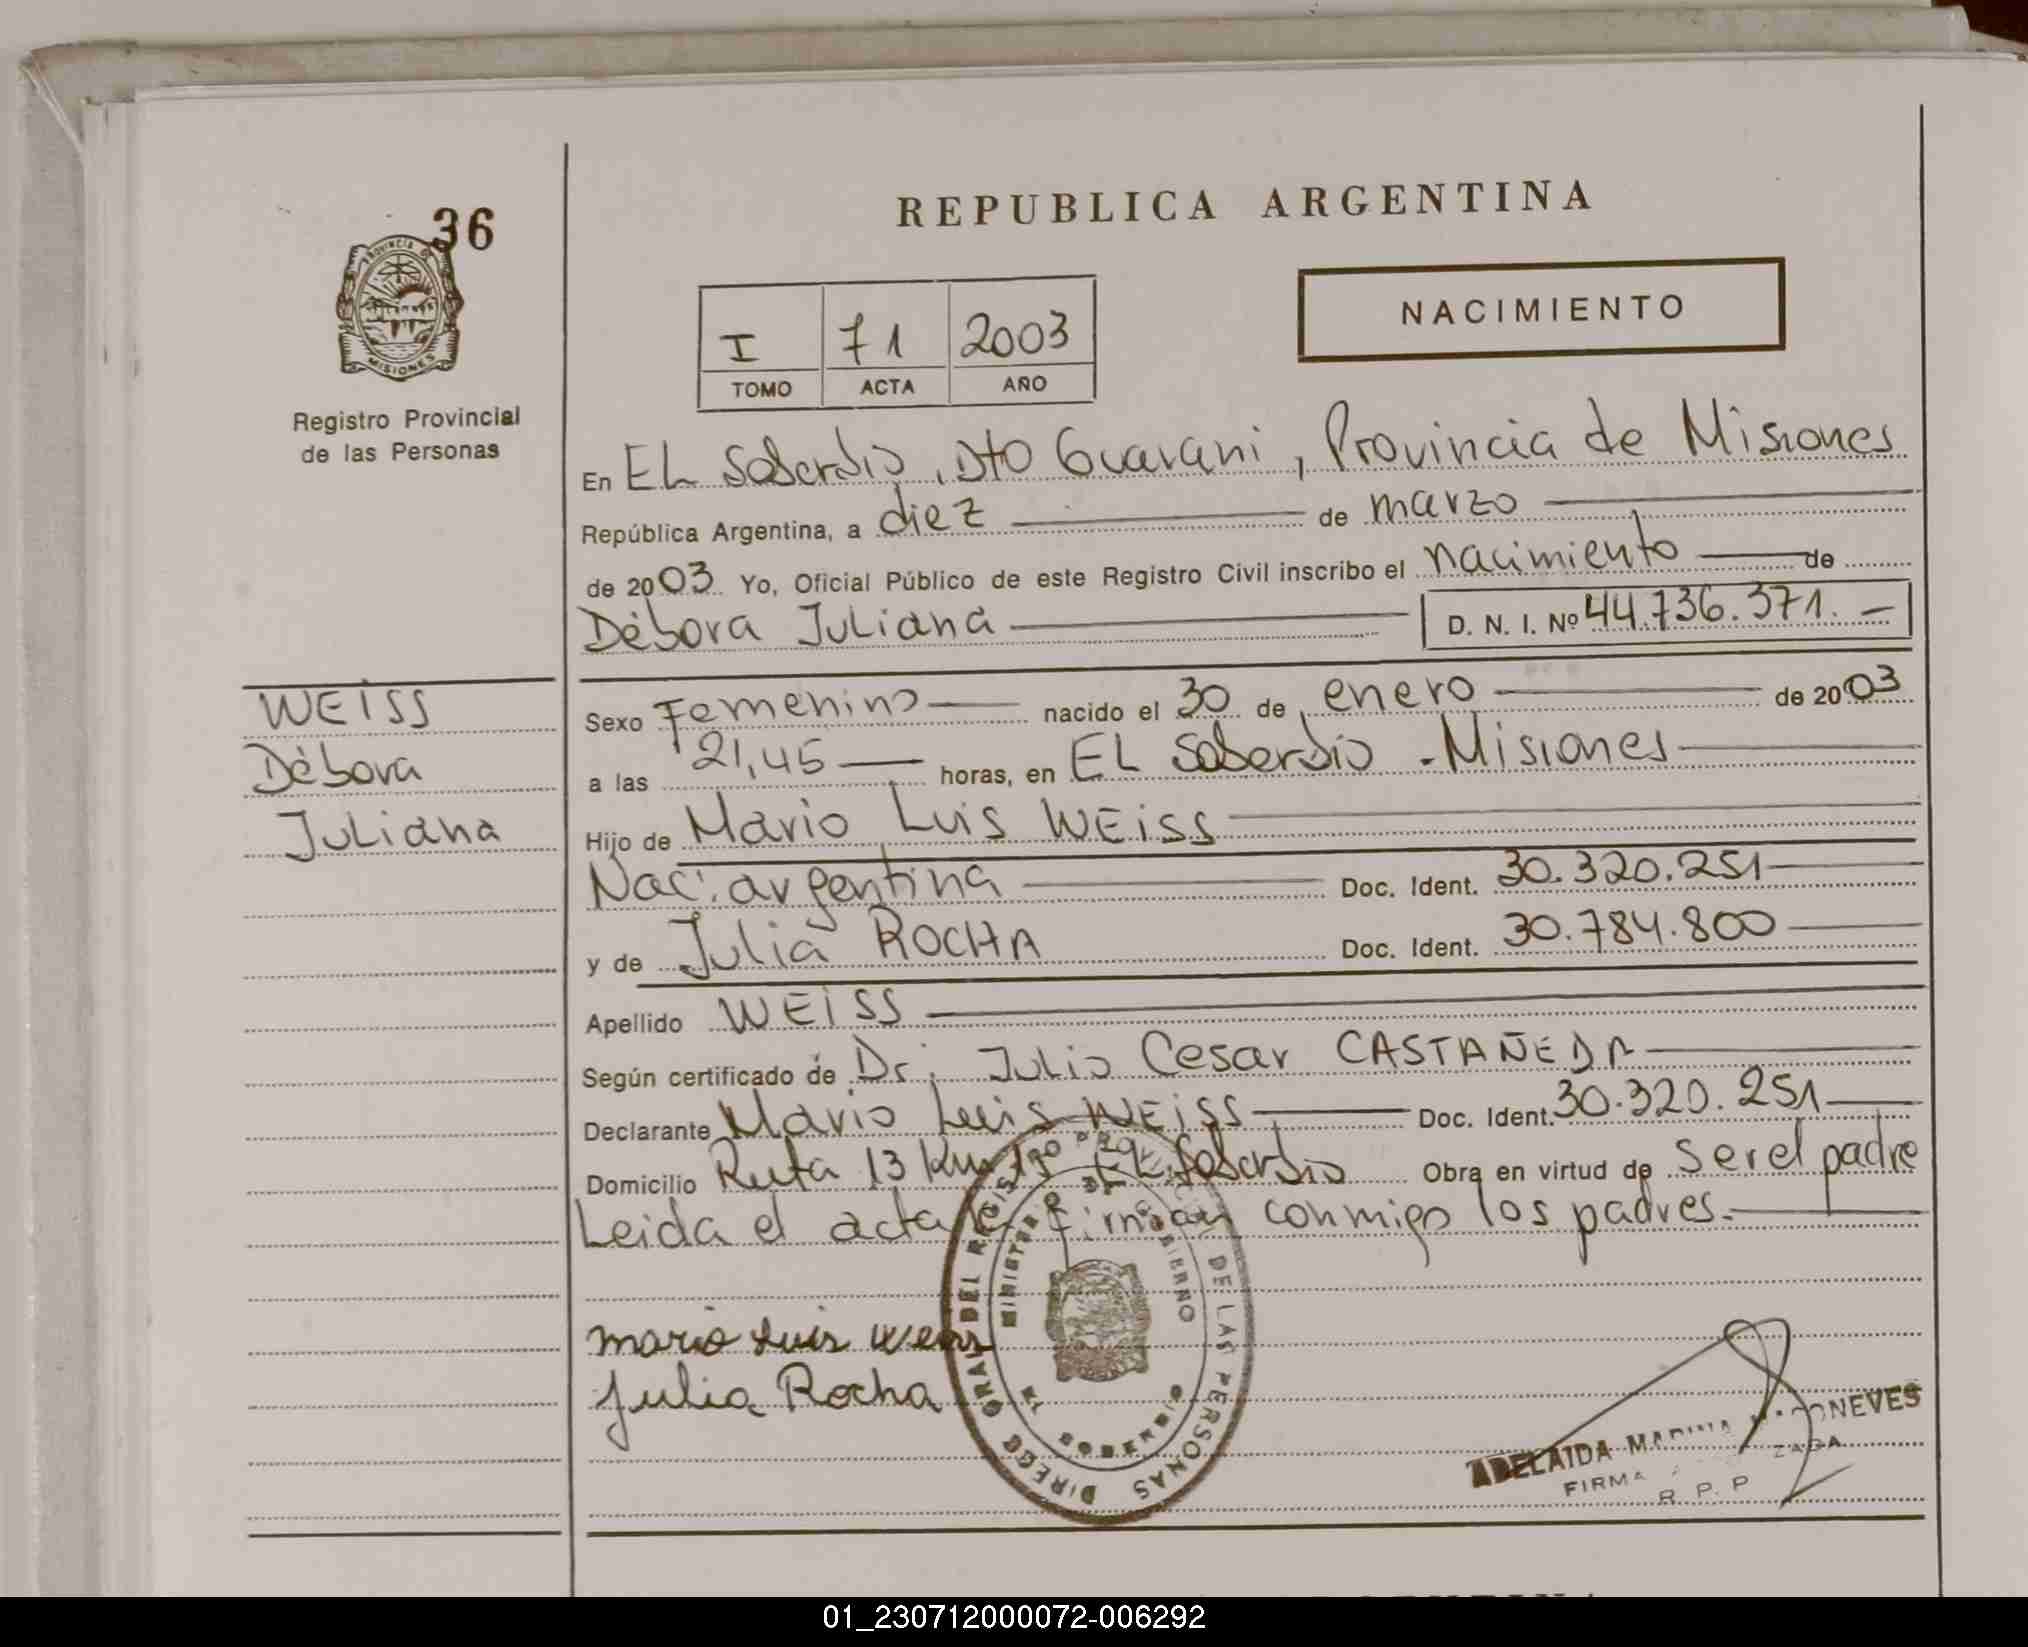 36
PROVINCIA DE
MISIONES
Registro Provincial
de las Personas
REPUBLICA ARGENTINA
I 71 2003
TOMO ACTA AÑO
NACIMIENTO
En EL Soberbio, Dto Guarani, Provincia de Misiones
República Argentina, a diez de marzo
de 2003 Yo, Oficial Público de este Registro Civil inscribo el nacimiento de
Débora Juliana D. N. I. Nº 44.736.371.-
WEISS
Débora
Juliana
Sexo Femenino nacido el 30 de enero de 2003
a las 21,45 horas, en EL Soberbio - Misiones
Hijo de Mario Luis WEISS
Nac: argentina Doc. Ident. 30.320.251
y de Julia ROCHA Doc. Ident. 30.784.800
Apellido WEISS
Según certificado de Dr: Julio Cesar CASTAÑEDA
Declarante Mario Luis WEISS Doc. Ident. 30.320.251
Domicilio Ruta 13 Km EL Soberbio Obra en virtud de ser el padre
Leida el acta la firman conmigo los padres.-
mario Luis Weiss
Julia Rocha
DIREC. GRAL. DEL REGIS DE LAS PERSONAS
MINISTERIO DE GOBIERNO
EL SOBERBIO
ADELAIDA MARINA NEVES
FIRMA
R. P. P
01_230712000072-006292